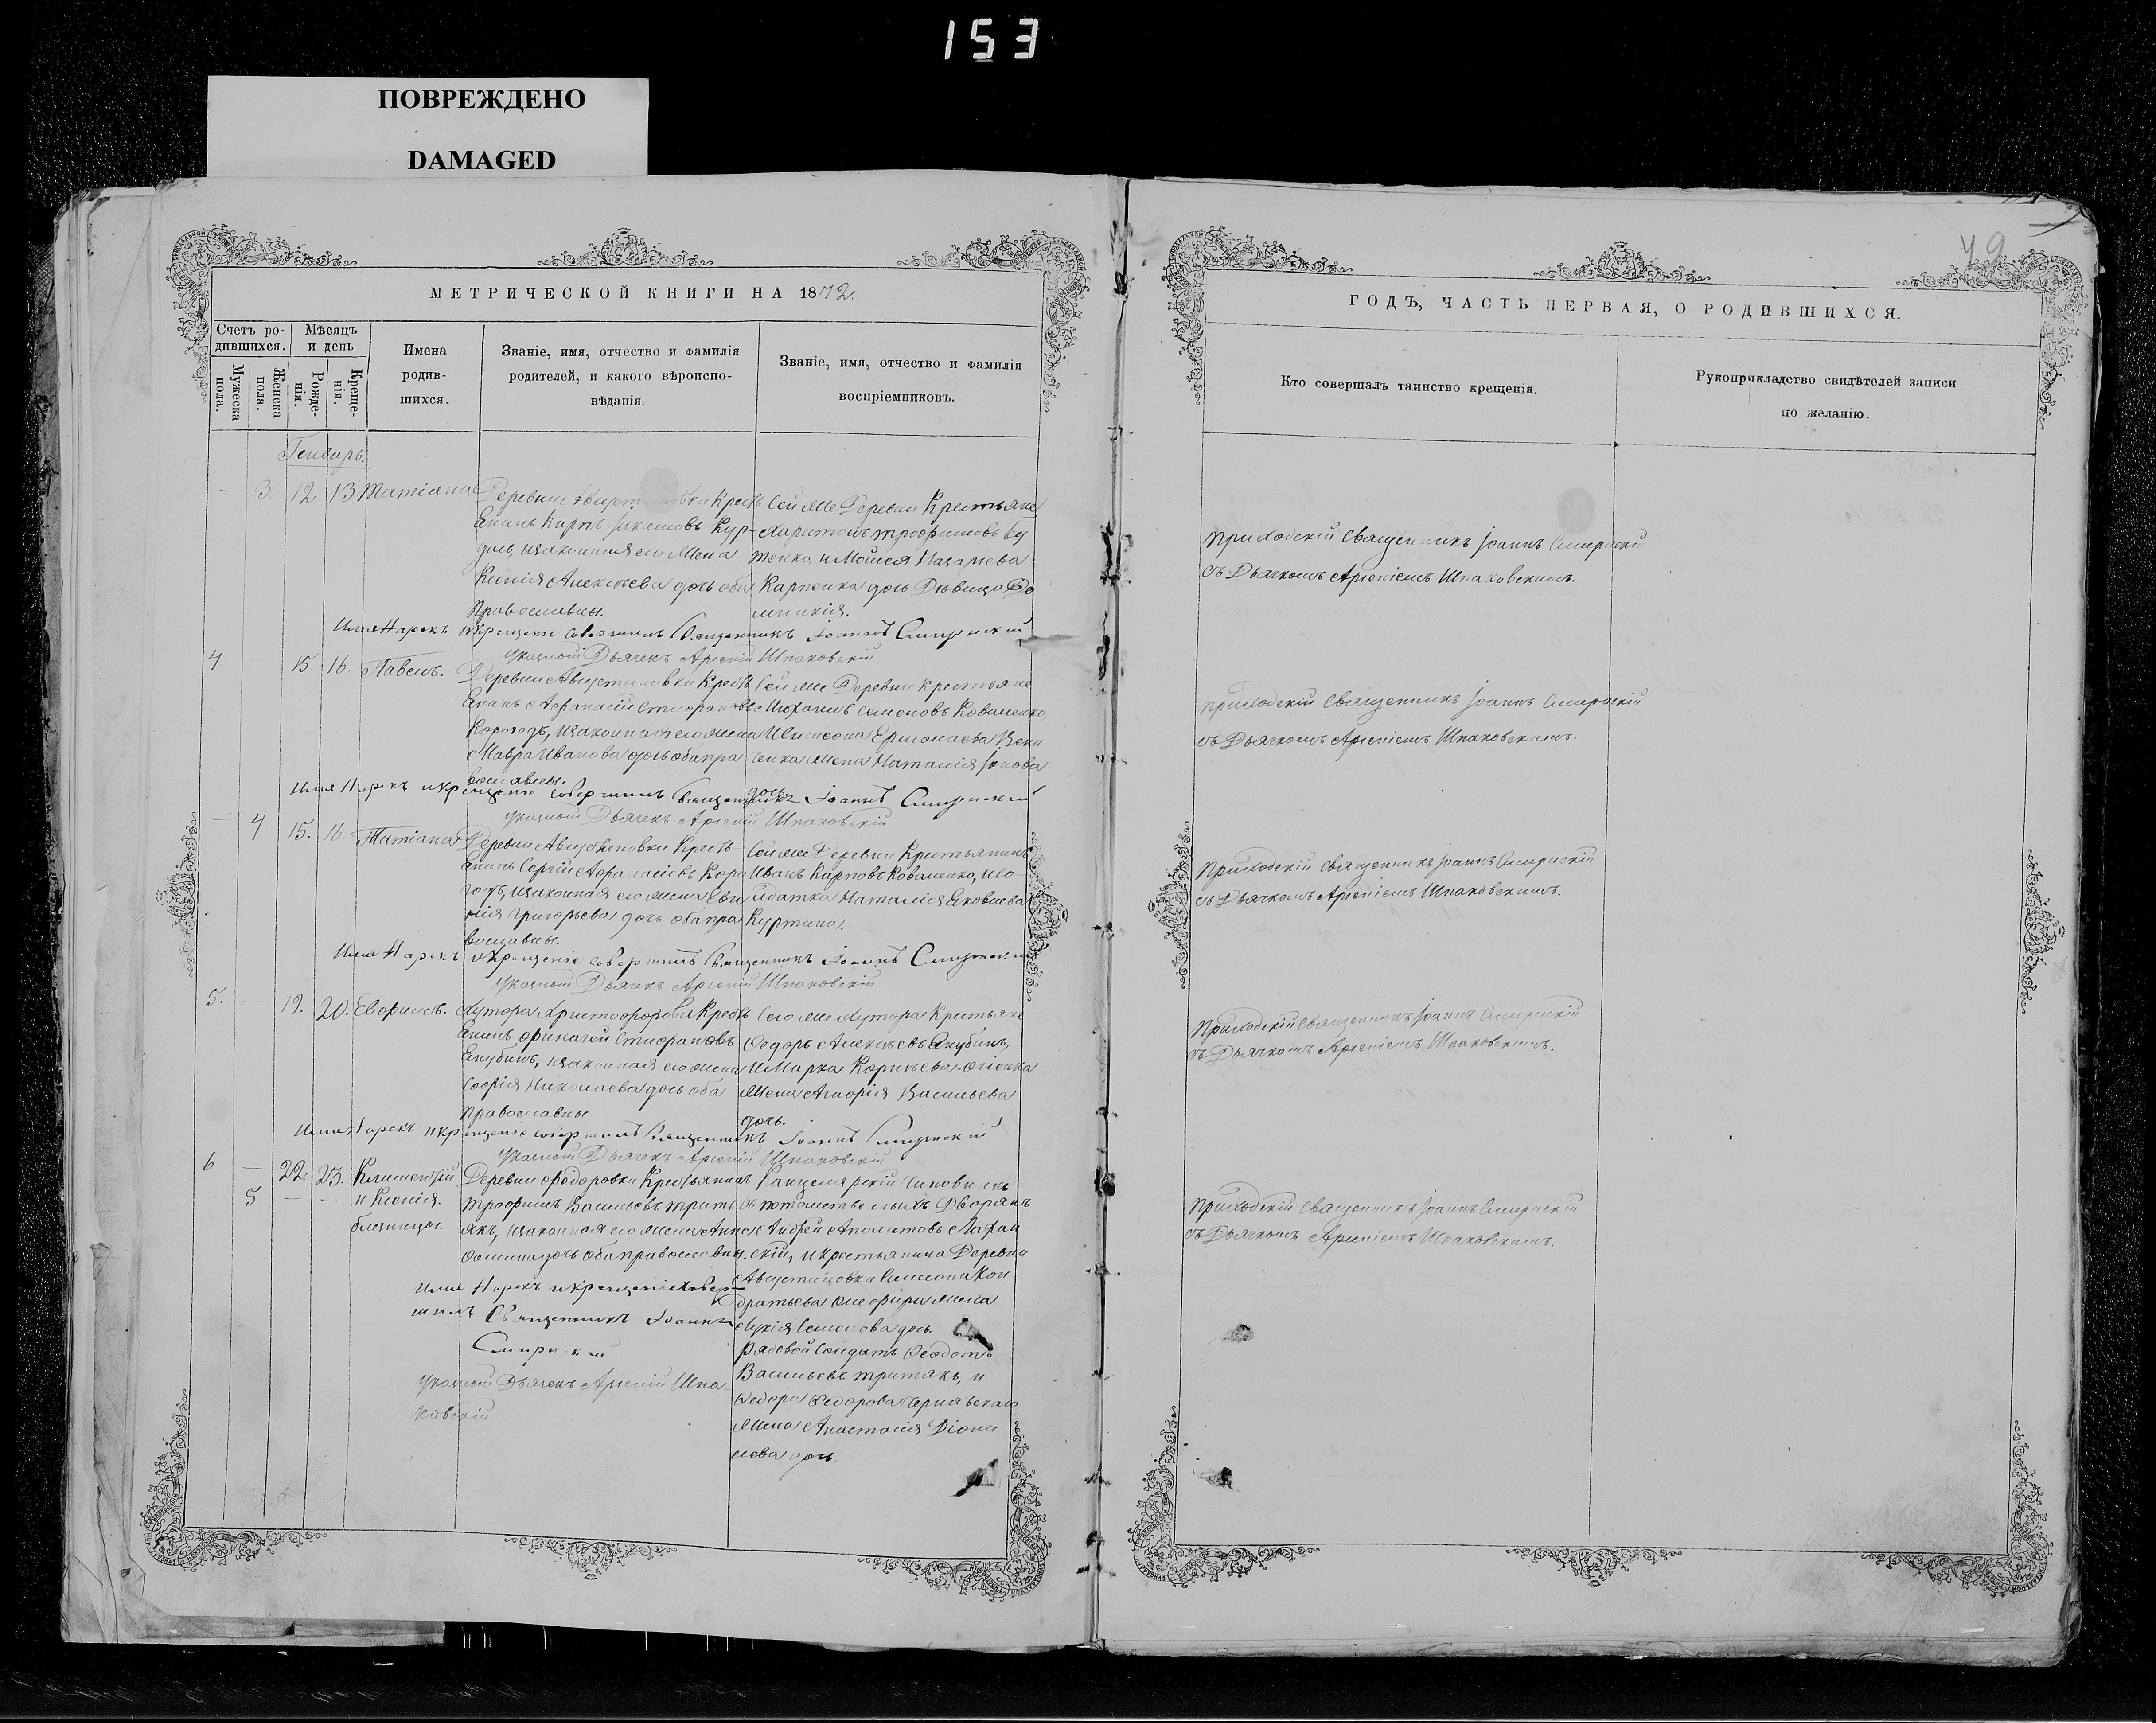 153
ПОВРЕЖДЕНО
DAMAGED
МЕТРИЧЕСКОЙ КНИГИ НА 1872.
Счетъ ро-
дившихся.
Мѣсяцъ
и день
Мужеска
пола.
Женска
пола.
Рожде-
нія.
Креще-
нія.
Имена
родив-
шихся.
Званіе, имя, отчество и фамилія
родителей, и какого вѣроиспо-
вѣданія.
Званіе, имя, отчество и фамилія
воспріемниковъ.
Генварь.
3 12 13 Татіана
Деревни Августиновки Кресть
янинъ Карпъ Кур-
законная его жена
Ксенія Алексѣева дочь оба
Православны.
Сей же Деревни Крестьяне
Харитонъ Трофимовъ
и Моисея Назарьева
Карпенка дочь Дѣвица До
мникія.
Имя Нарекъ и крещеніе совершилъ Священникъ Іоаннъ
Дьячекъ Арсеній Шпаковскій
4 15 16 Павелъ.
Деревни Августиновки Кресть
янинъ Афанасій Стефановъ
Коргодъ, и законная его жена
Мавра Иванова дочь оба пра
вославны.
Сей же Деревни Крестьяне
Семеновъ Коваленко
и Ермолаева
жена Наталія
дочь.
Имя Нарекъ и крещеніе совершилъ Священникъ Іоаннъ
Дьячекъ Арсеній Шпаковскій
4 15. 16. Татіана
Деревни Августиновки Кресть
янинъ Сергій Афанасіевъ Коро
годъ, и законная его жена Евге
нія Григорьева дочь оба пра
вославны.
Сей же Деревни Крестьянинъ
Иванъ Карповъ Коваленко, и со-
лдатка Наталія Яковлева
Имя Нарекъ и крещеніе совершилъ Священникъ Іоаннъ
Дьячекъ Арсеній Шпаковскій
5. 19. 20. Евфимъ.
Хутора Христофоровки Кресть
янинъ Стефановъ
Якубинъ, и законная его жена
Софія Николаева дочь оба
Православны
Сего же Хутора Крестьяне
Федоръ Алексѣевъ Якубинъ,
и Марка Корнѣева
жена Васильева
дочь.
Имя Нарекъ и крещеніе совершилъ Священникъ Іоаннъ
Дьячекъ Арсеній Шпаковскій
6 22. 23. Климентій
5 и Ксенія.
близнецы.
Деревни Федоровки Крестьянинъ
Трофимъ Васильевъ Трит
якъ, и законная его жена Анна
дочь оба православны.
Канцелярскій Чиновникъ
потомственныхъ Дворянъ
Андрей
скій, и крестьянина Деревни
Августиновки Кон
дратьева жена
Семенова дочь.
Рядовой Солдатъ Феодотъ
Васильевъ Тритякъ, и
Федора Федорова Чернявскаго
жена Анастасія Діони
сіева дочь
Имя Нарекъ и крещеніе совер-
шилъ Священникъ Іоаннъ
Дьячекъ Арсеній Шпа
ковскій
ГОДЪ, ЧАСТЬ ПЕРВАЯ, О РОДИВШИХСЯ.
Кто совершалъ таинство крещенія.
Рукоприкладство свидѣтелей записи
по желанію.
Приходскій Священникъ Іоаннъ
съ Дьячкомъ Арсеніемъ Шпаковскимъ.
Приходскій Священникъ Іоаннъ
съ Дьячкомъ Арсеніемъ Шпаковскимъ.
Приходскій Священникъ Іоаннъ
съ Дьячкомъ Арсеніемъ Шпаковскимъ.
Приходскій Священникъ Іоаннъ
съ Дьячкомъ Арсеніемъ Шпаковскимъ.
Приходскій Священникъ Іоаннъ
съ Дьячкомъ Арсеніемъ Шпаковскимъ.